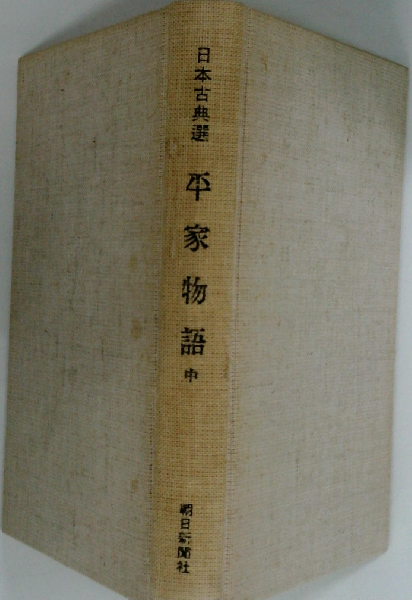 日本古典選
平家物語
中
朝日新聞社